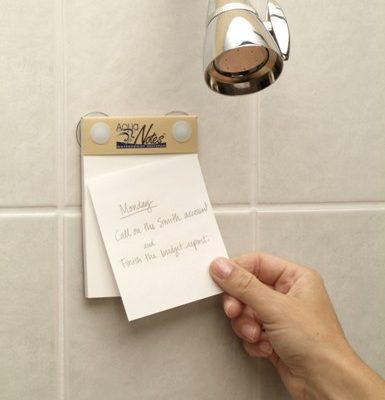 Aqua
Notes
Monday
Call on the Smith account
and
Finish the budget report.